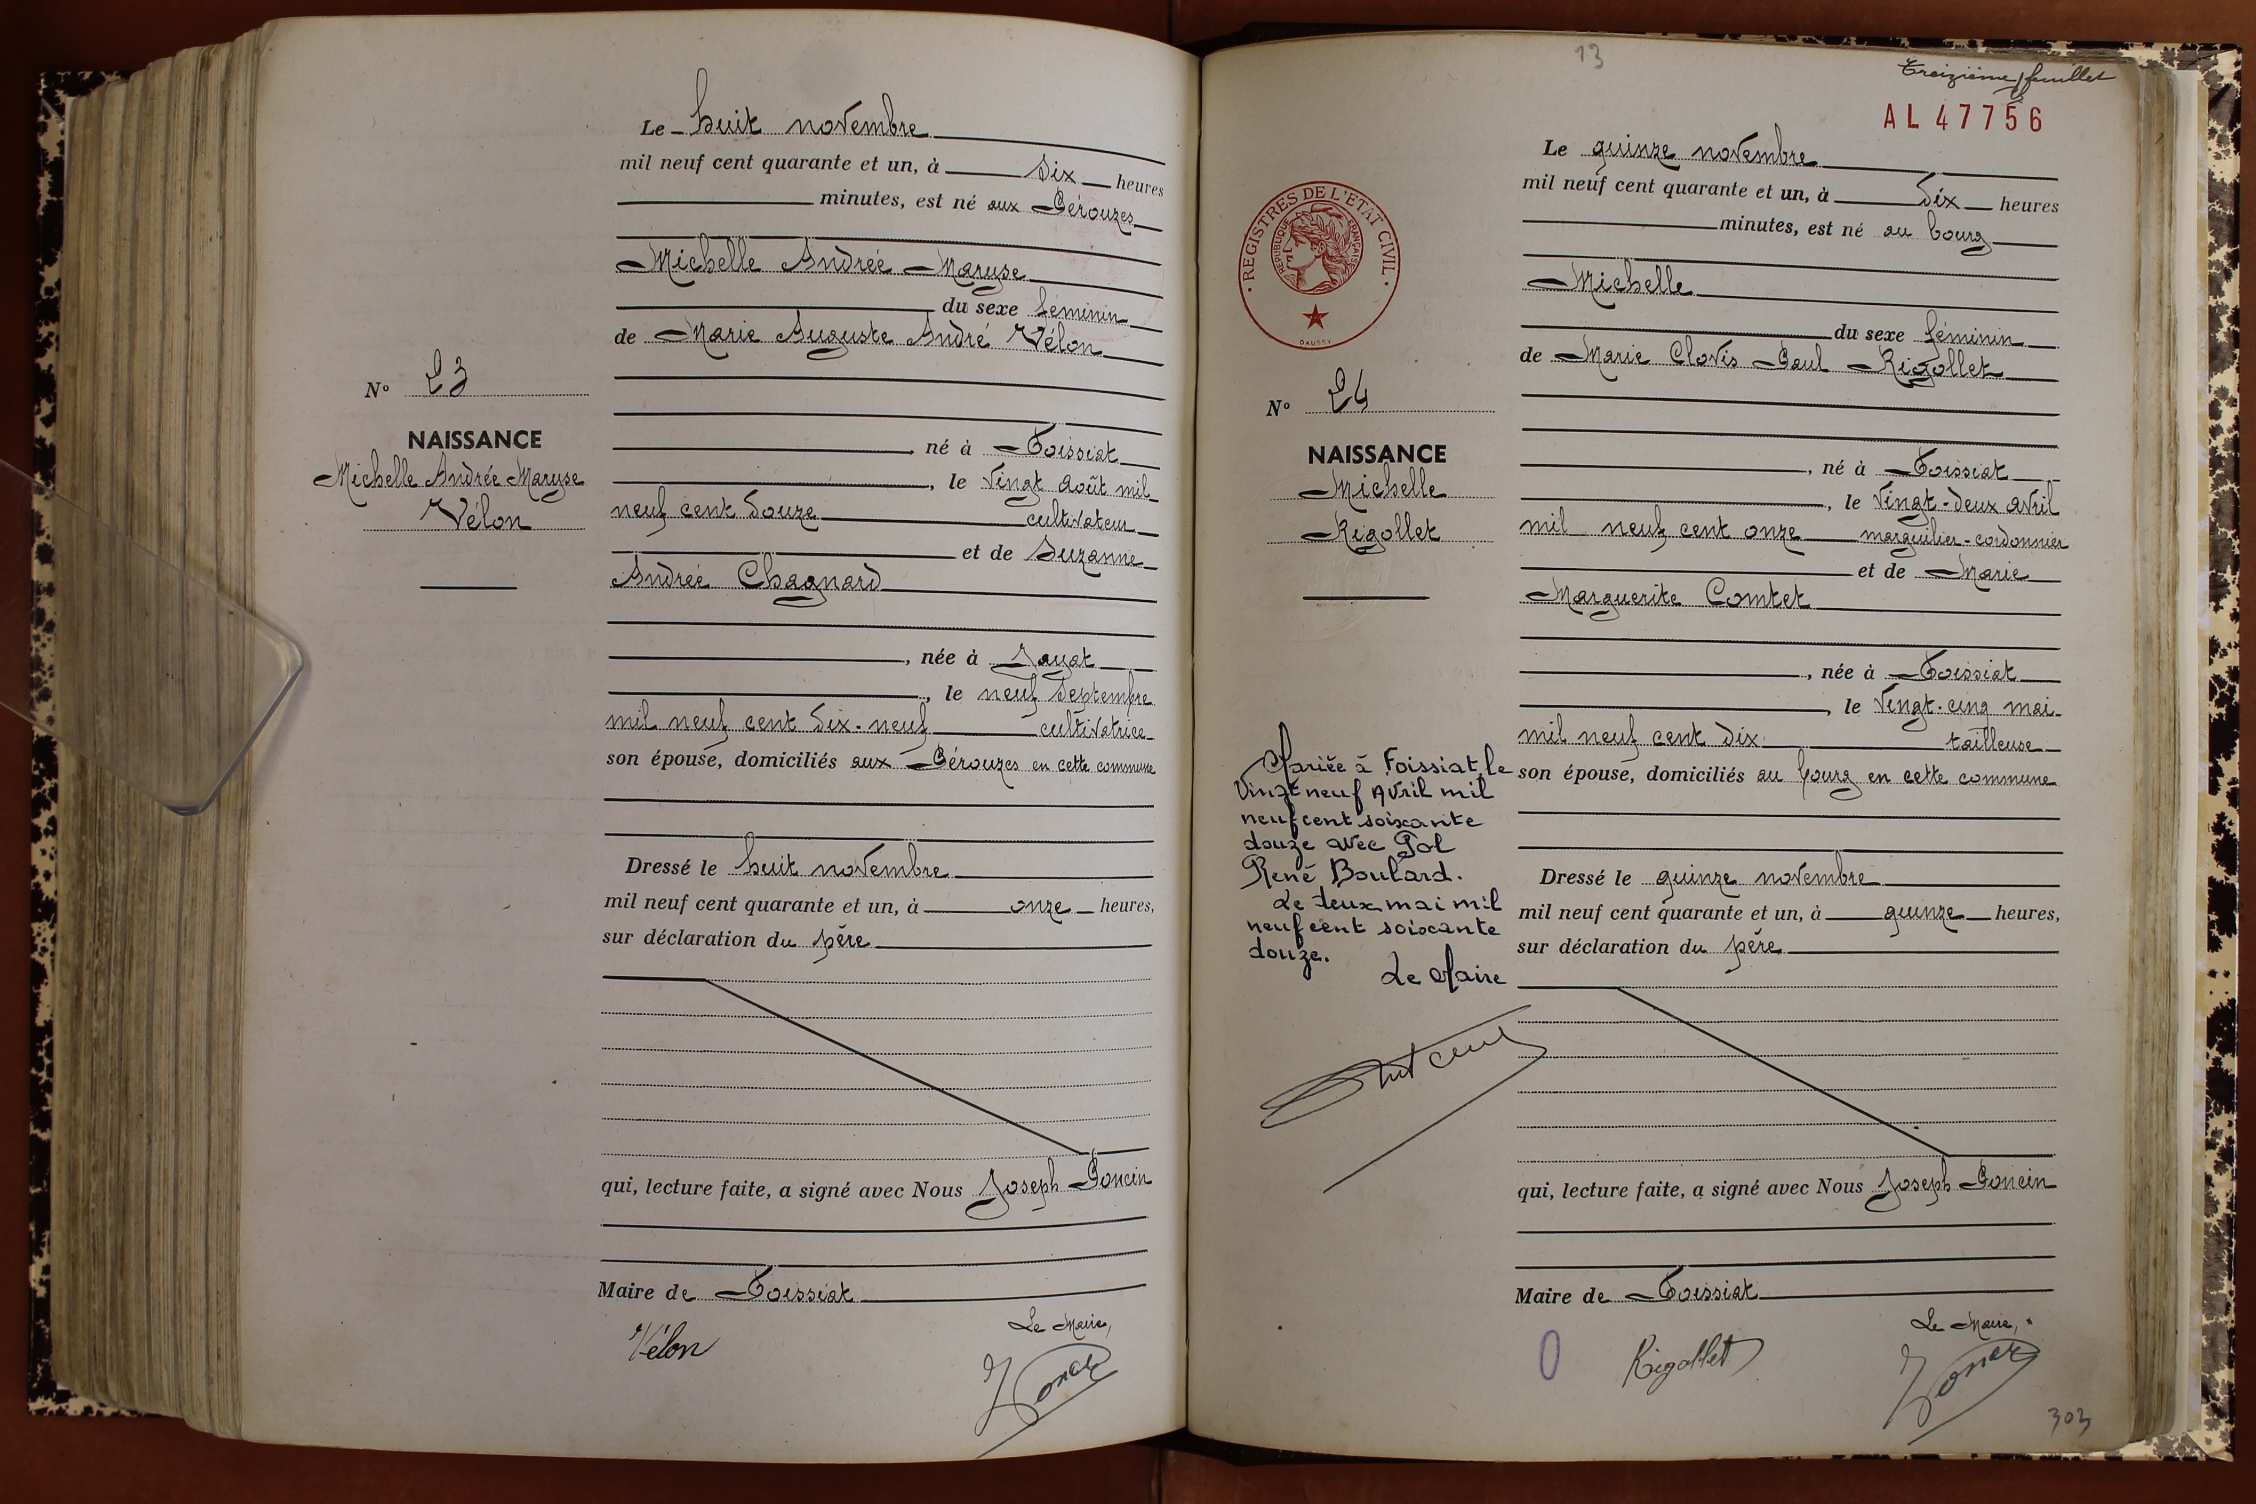 Le huit novembre
mil neuf cent quarante et un, à six heures
minutes, est né aux Pérouzes
Michelle Andrée Maryse
du sexe féminin
de Marie Auguste André Vélon
né à Foissiat
, le vingt août mil
neuf cent douze cultivateur
et de Suzanne
Andrée Chagnard
, née à Jayat
, le neuf septembre
mil neuf cent dix-neuf cultivatrice
son épouse, domiciliés aux Pérouzes en cette commune
Dressé le huit novembre
mil neuf cent quarante et un, à onze heures,
sur déclaration du père
qui, lecture faite, a signé avec Nous Joseph Poncin
Maire de Foissiat
Le Maire,
Vélon
Nº 23
NAISSANCE
Michelle Andrée Maryse
Vélon
13
Treizième feuillet
AL 47756
REGISTRES DE L'ETAT CIVIL
REPUBLIQUE FRANÇAISE
DAUSSY
Nº 24
NAISSANCE
Michelle
Rigollet
Le quinze novembre
mil neuf cent quarante et un, à six heures
minutes, est né au bourg
Michelle
du sexe féminin
de Marie Clovis Paul Rigollet
, né à Foissiat
, le vingt-deux avril
mil neuf cent onze marguilier-cordonnier
et de Marie
Marguerite Comtet
, née à Foissiat
, le vingt-cinq mai
mil neuf cent dix tailleuse
son épouse, domiciliés au bourg en cette commune
Dressé le quinze novembre
mil neuf cent quarante et un, à quinze heures,
sur déclaration du père
qui, lecture faite, a signé avec Nous Joseph Poncin
Maire de Foissiat
Le Maire,
Rigollet
Mariée à Foissiat, le
vingt neuf Avril mil
neuf cent soixante
douze avec Pol
René Boulard.
Le deux mai mil
neuf cent soixante
douze.
Le Maire
303